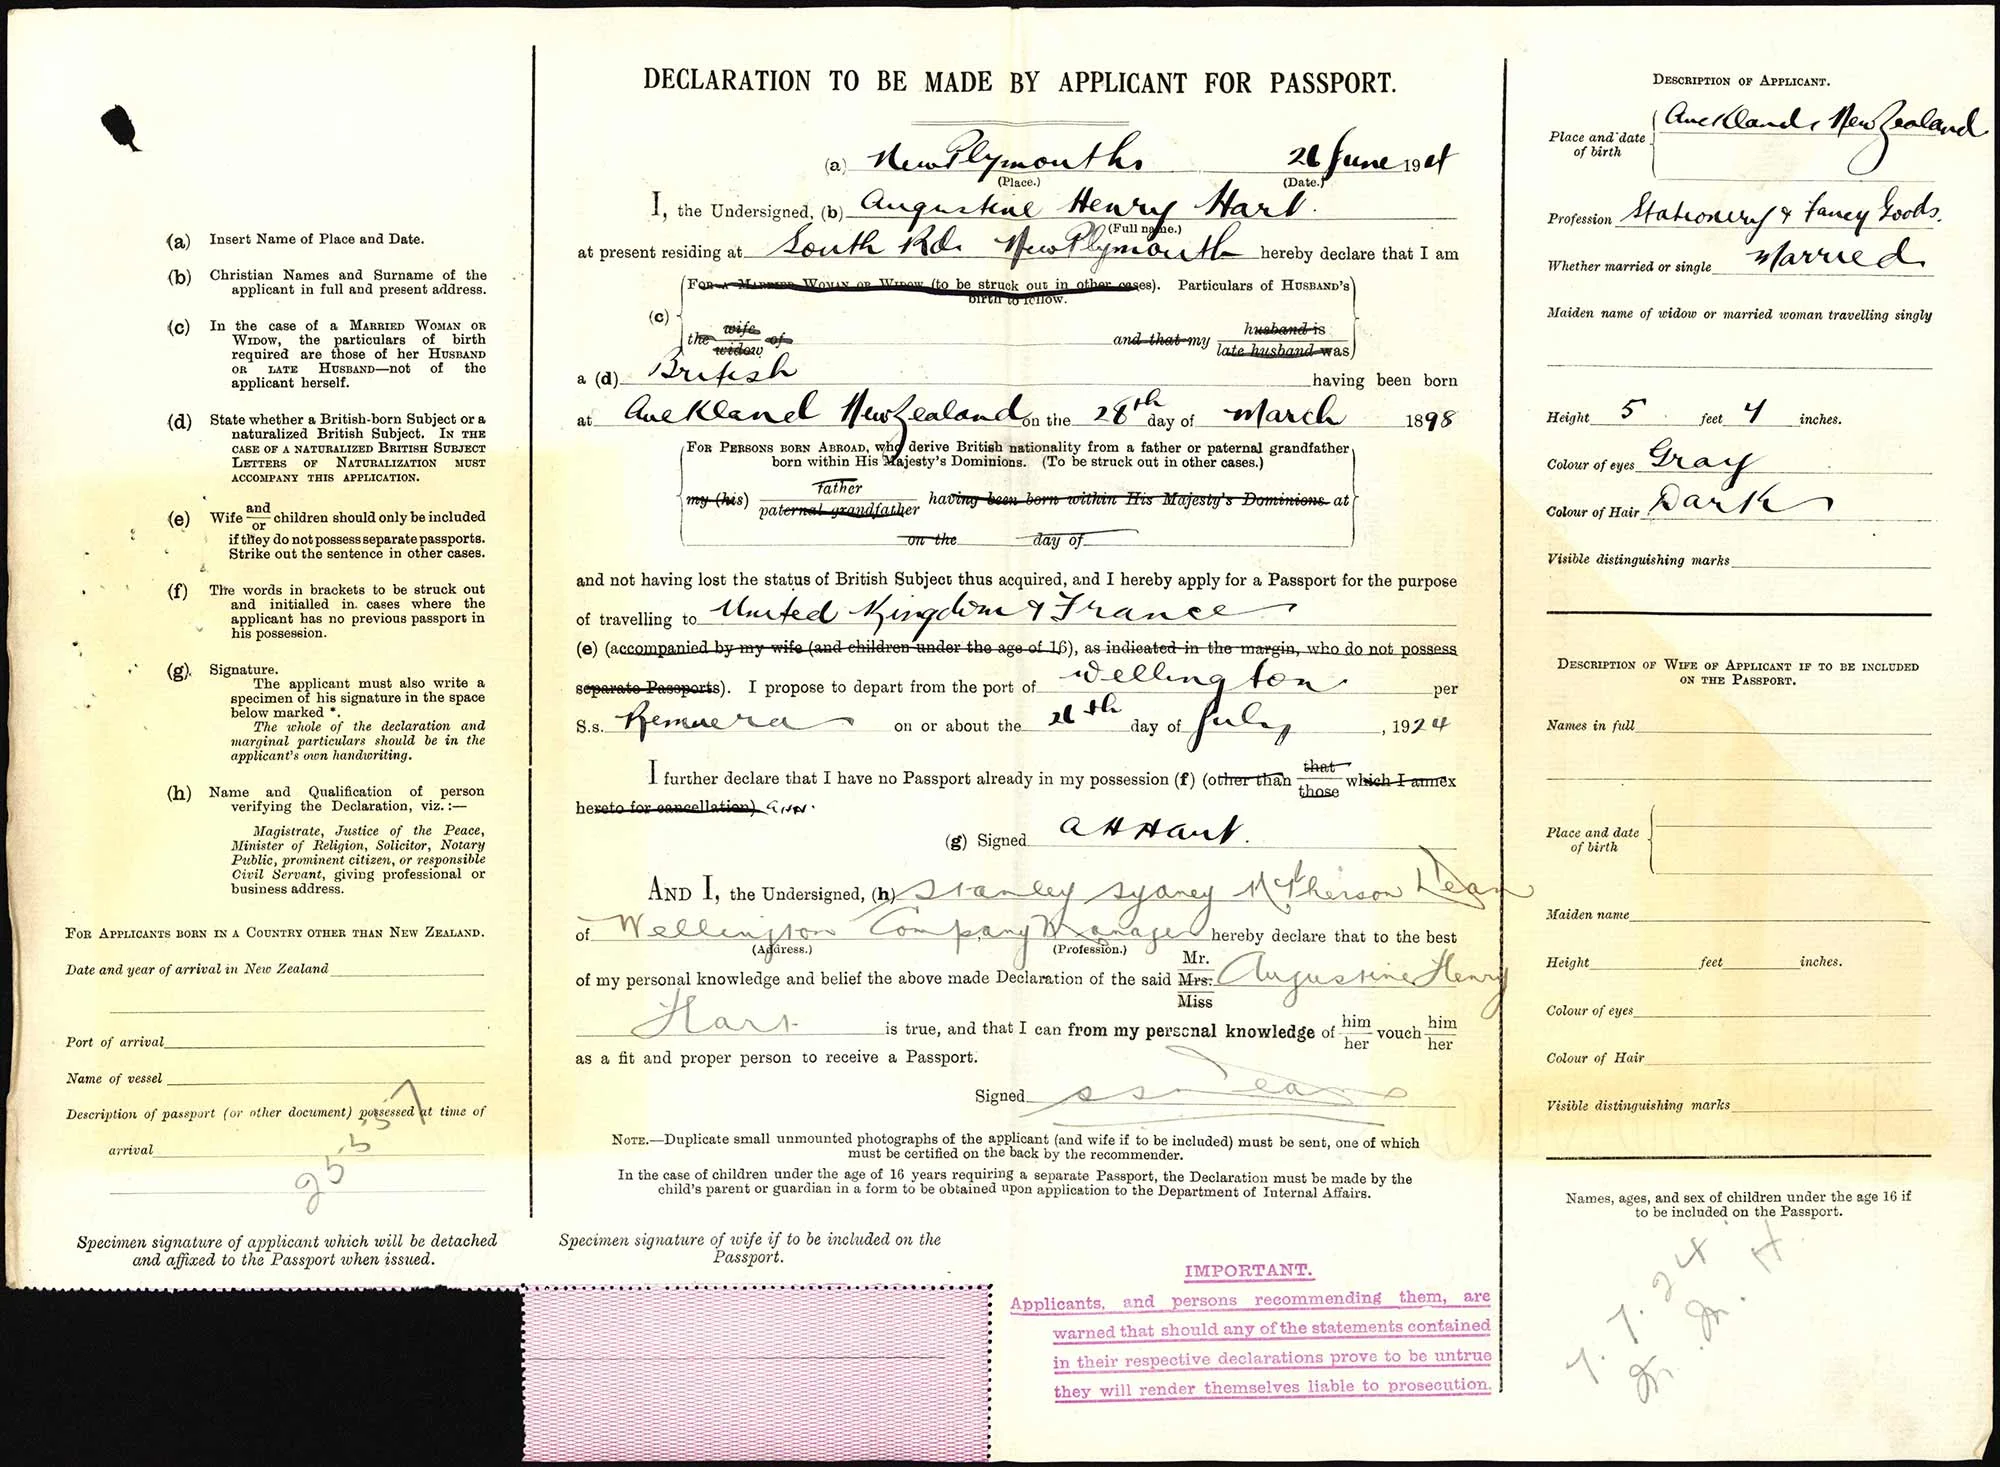 (a) Insert Name of Place and Date.
(b) Christian Names and Surname of the
applicant in full and present address.
(c) In the case of a MARRIED WOMAN OR
WIDOW, the particulars of birth
required are those of her HUSBAND
OR LATE HUSBAND—not of the
applicant herself.
(d) State whether a British-born Subject or a
naturalized British Subject. IN THE
CASE OF A NATURALIZED BRITISH SUBJECT
LETTERS OF NATURALIZATION MUST
ACCOMPANY THIS APPLICATION.
(e) Wife and/or children should only be included
if they do not possess separate passports.
Strike out the sentence in other cases.
(f) The words in brackets to be struck out
and initialled in cases where the
applicant has no previous passport in
his possession.
(g) Signature.
The applicant must also write a
specimen of his signature in the space
below marked *.
The whole of the declaration and
marginal particulars should be in the
applicant's own handwriting.
(h) Name and Qualification of person
verifying the Declaration, viz.:—
Magistrate, Justice of the Peace,
Minister of Religion, Solicitor, Notary
Public, prominent citizen, or responsible
Civil Servant, giving professional or
business address.
FOR APPLICANTS BORN IN A COUNTRY OTHER THAN NEW ZEALAND.
Date and year of arrival in New Zealand
Port of arrival
Name of vessel
Description of passport (or other document) possessed at time of
arrival
Specimen signature of applicant which will be detached
and affixed to the Passport when issued.
DECLARATION TO BE MADE BY APPLICANT FOR PASSPORT.
(a) New Plymouth 26 June 19
(Place.) (Date.)
I, the Undersigned, (b) Augustine Henry Hart.
(Full name.)
at present residing at South Rd. New Plymouth hereby declare that I am
(c) FOR A MARRIED WOMAN OR WIDOW (to be struck out in other cases). Particulars of HUSBAND'S
birth to follow.
the wife/widow of and that my husband is/late husband was
a (d) British having been born
at Auckland New Zealand on the 28th day of March 1898
FOR PERSONS BORN ABROAD, who derive British nationality from a father or paternal grandfather
born within His Majesty's Dominions. (To be struck out in other cases.)
my (his) father/paternal grandfather having been born within His Majesty's Dominions at
on the day of
and not having lost the status of British Subject thus acquired, and I hereby apply for a Passport for the purpose
of travelling to United Kingdom & France
(e) (accompanied by my wife (and children under the age of 16), as indicated in the margin, who do not possess
separate Passports). I propose to depart from the port of Wellington per
S.s. Remuera on or about the 26th day of July, 1924
I further declare that I have no Passport already in my possession (f) (other than that/those which I annex
hereto for cancellation) AHH.
(g) Signed A H Hart.
AND I, the Undersigned, (h) Stanley Sydney McPherson Dean
of Wellington Company Manager hereby declare that to the best
(Address.) (Profession.)
of my personal knowledge and belief the above made Declaration of the said Mr./Mrs./Miss Augustine Henry
Hart is true, and that I can from my personal knowledge of him/her vouch him/her
as a fit and proper person to receive a Passport.
Signed S S M Dean
NOTE.—Duplicate small unmounted photographs of the applicant (and wife if to be included) must be sent, one of which
must be certified on the back by the recommender.
In the case of children under the age of 16 years requiring a separate Passport, the Declaration must be made by the
child's parent or guardian in a form to be obtained upon application to the Department of Internal Affairs.
Specimen signature of wife if to be included on the
Passport.
IMPORTANT.
Applicants, and persons recommending them, are
warned that should any of the statements contained
in their respective declarations prove to be untrue
they will render themselves liable to prosecution.
DESCRIPTION OF APPLICANT.
Place and date
of birth Auckland, New Zealand
Profession Stationery & Fancy Goods.
Whether married or single Married
Maiden name of widow or married woman travelling singly
Height 5 feet 4 inches.
Colour of eyes Gray
Colour of Hair Dark
Visible distinguishing marks
DESCRIPTION OF WIFE OF APPLICANT IF TO BE INCLUDED
ON THE PASSPORT.
Names in full
Place and date
of birth
Maiden name
Height feet inches.
Colour of eyes
Colour of Hair
Visible distinguishing marks
Names, ages, and sex of children under the age 16 if
to be included on the Passport.
1.7.24